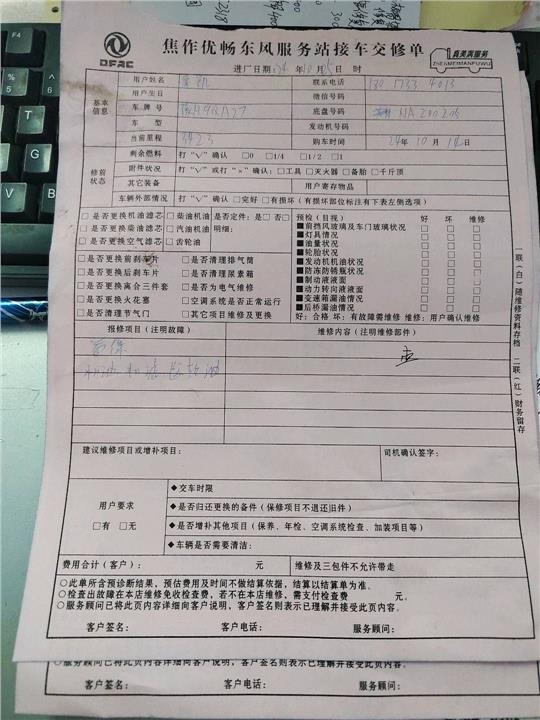 DFAC
焦作优畅东风服务站接车交修单
真美满服务
ZHENMEIMANFUWU
进厂日期 24 年 10 月 15 日 时
基本信息
用户姓名 联系电话
用户生日 微信号码
车牌号 底盘号码 HA200215
车 型 发动机号码
当前里程 购车时间 24年 10 月 14 日
修前状态
剩余燃料 打“√”确认 □0 □1/4 □1/2 □1
附件状况 打“√”或打“×”确认:□工具 □灭火器 □备胎 □千斤顶
其它装备 用户寄存物品
车辆外部情况 打“√”确认 □完好 □有损坏(有损坏部位标注有下表左侧选项)
□是否更换机油滤芯 □柴油机油 是否定件:是□否□
□是否更换柴油滤芯 □汽油机油 明细:
□是否更换空气滤芯 □齿轮油
□是否更换前刹车片 □是否清理排气筒
□是否更换后刹车片 □是否清理尿素箱
□是否更换离合三件套 □是否为电气维修
□是否更换火花塞 □空调系统是否正常运行
□是否清理节气门 □其它项目维修及更换
预检(目视) 好 坏 维修
■前挡风玻璃及车门玻璃状况 □ □ □
■灯具情况 □ □ □
■油量状况 □ □ □
■轮胎状况 □ □ □
■发动机机油状况 □ □ □
■防冻防锈瓶状况 □ □ □
■制动液液面 □ □ □
■动力转向液液面 □ □ □
■变速箱漏油情况 □ □ □
■后桥漏油情况 □ □ □
好:合格 坏:有故障需维修 维修:用户确认维修
报修项目(注明故障) 维修内容(注明维修部件)
首保
机油 机滤 齿轮油
建议维修项目或增补项目: 司机确认签字:
用户要求
□有 □无
◆交车时限
◆是否归还更换的备件(保修项目不退还旧件)
◆是否增补其他项目(保养、年检、空调系统检查、加装项目等)
◆车辆是否需要清洁:
费用合计(客户): 元 维修及三包件不允许带走
○此单所含预诊断结果,预估费用及时间不做结算依据,结算以结算单为准。
○检查出故障在本店维修免收检查费,若不在本店维修,需支付检查费 元。
○服务顾问已将此页内容详细向客户说明,客户签名则表示已理解并接受此页内容。
客户签名: 客户电话: 服务顾问:
一联(白)随维修资料存档 二联(红)财务留存
○服务顾问已将此页内容详细向客户说明,客户签名则表示已理解并接受此页内容。
客户签名: 客户电话: 服务顾问: